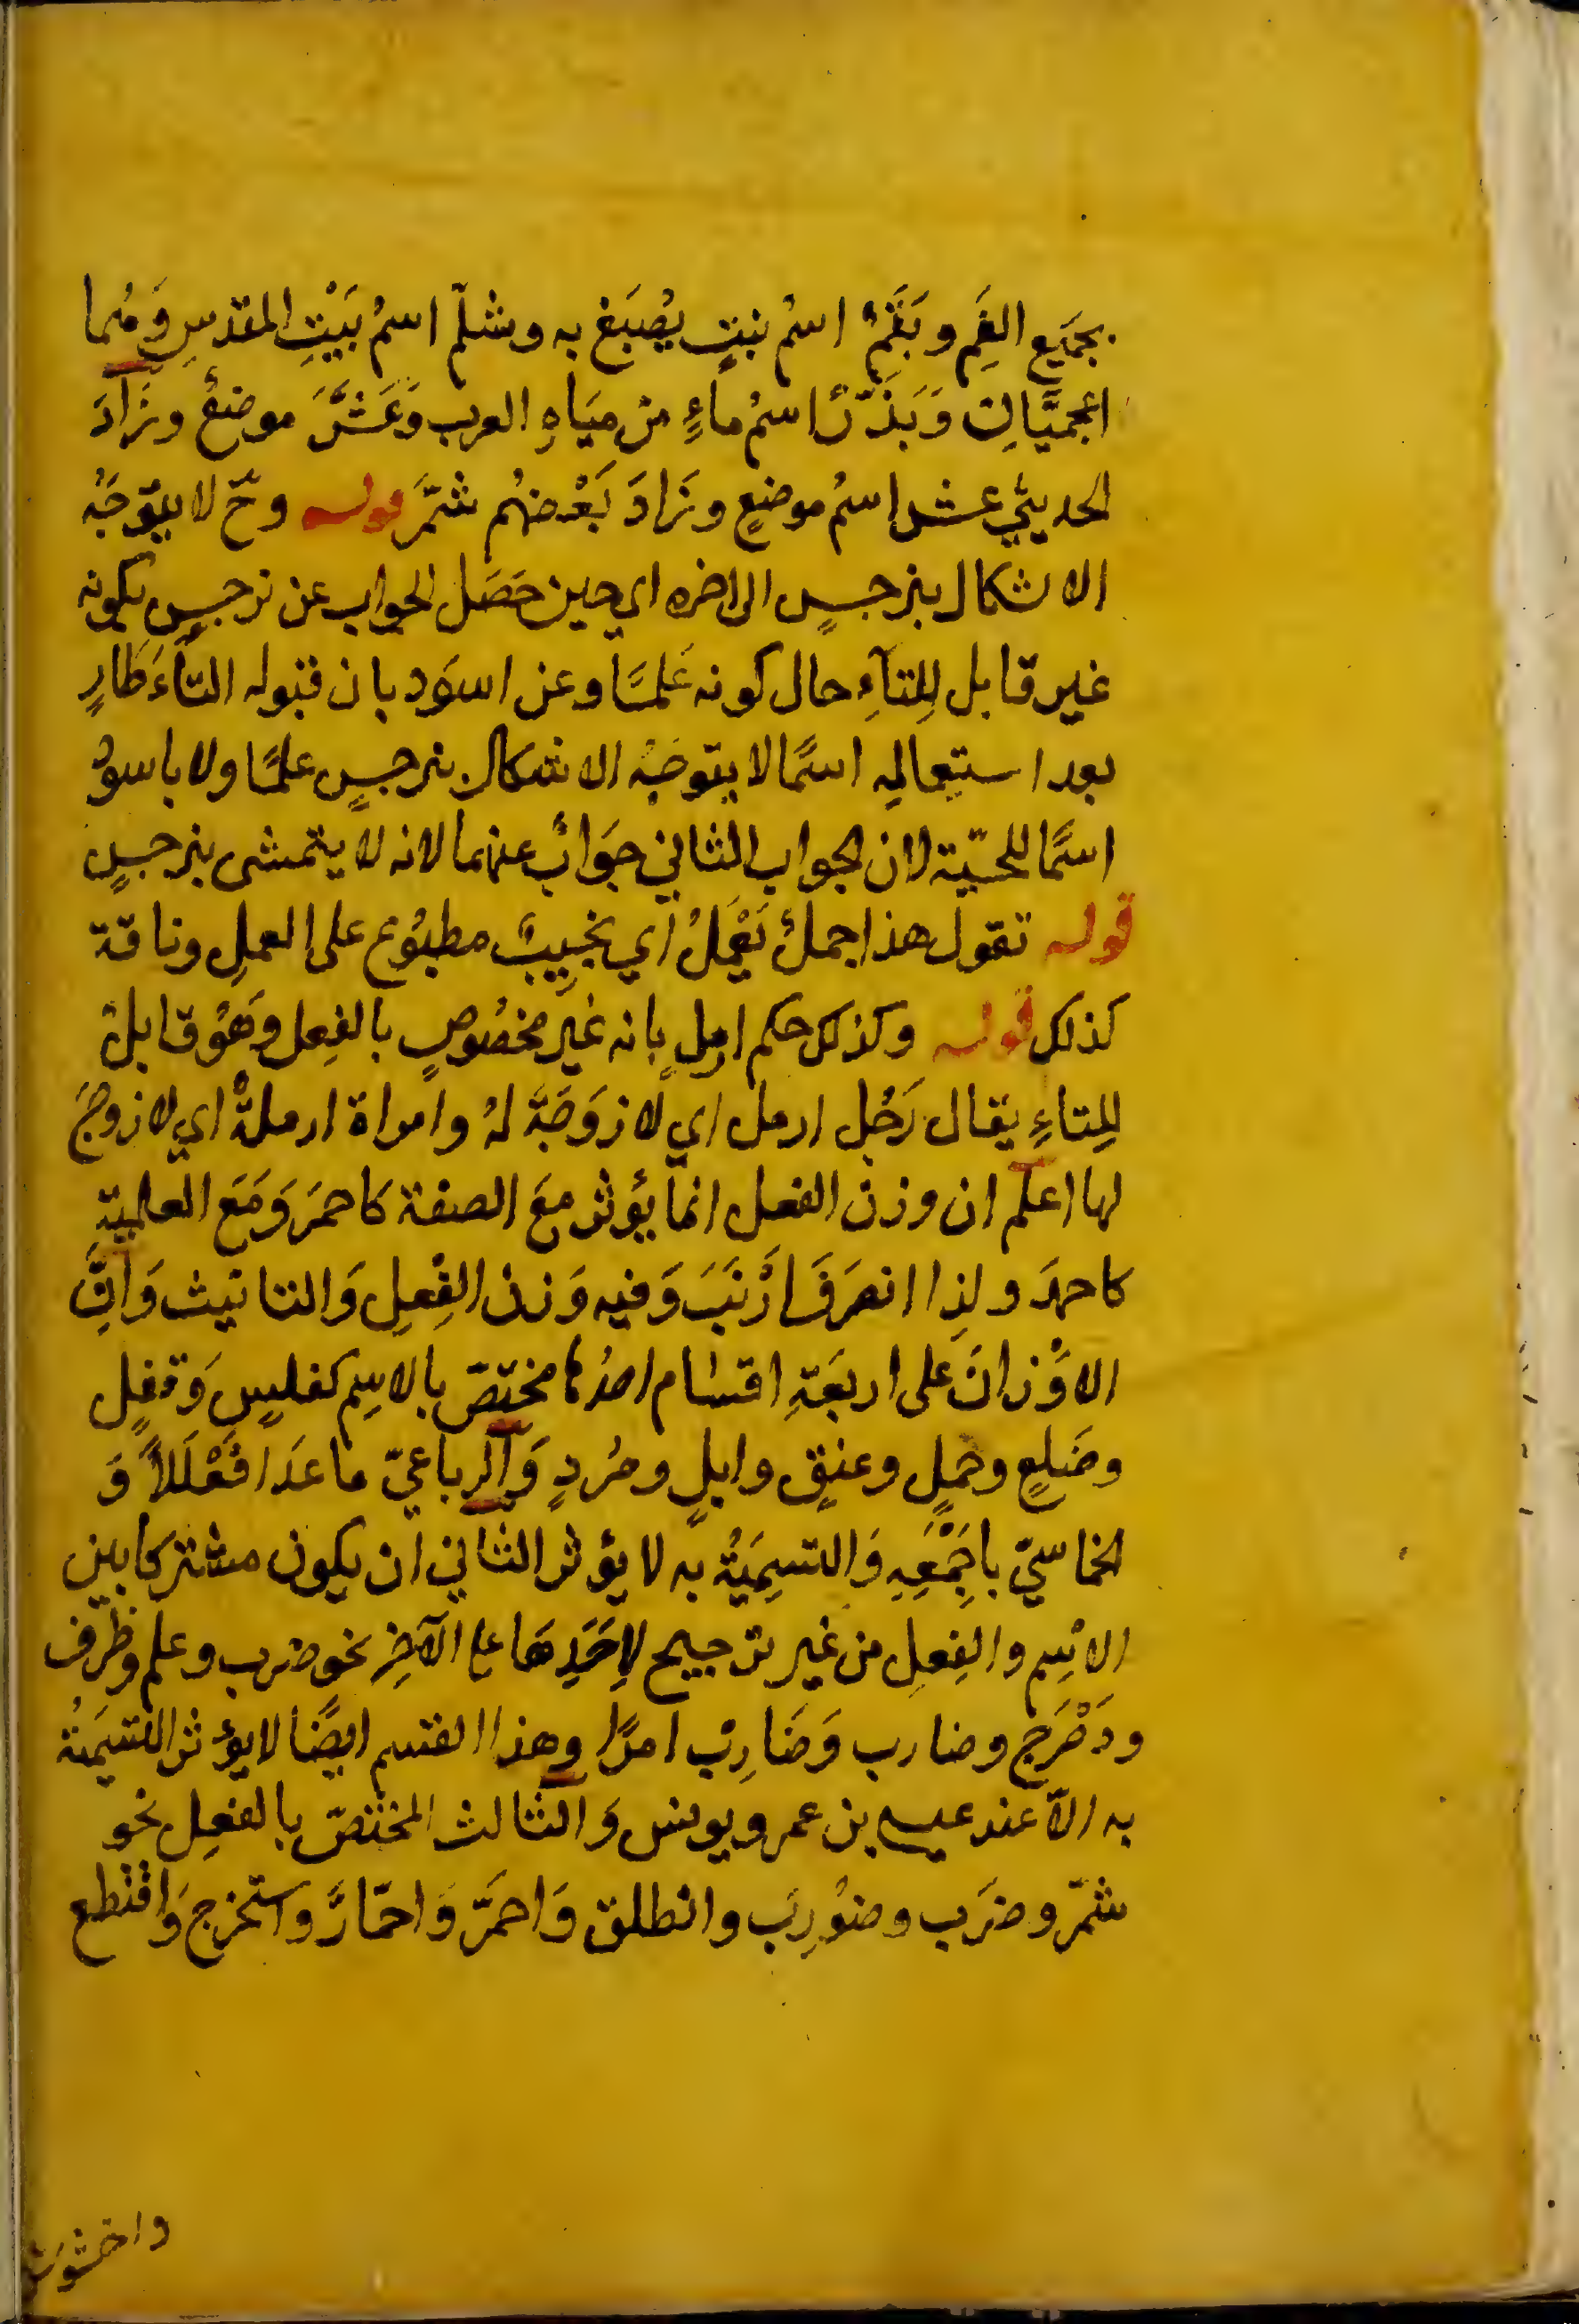 بجَميع الفَمِ وبَقَّمٌ اسْمُ نبتٍ يُصْبَغ به وشلّم اسمُ بَيْتِ المقدسِ وَهُما
اعجميَّانِ وَبَذَّرٌ اسمُ ماءٍ من مِيَاهِ العرب وَعَثَّرَ موضعٌ وزَادَ
الحديثي عشر اسمُ موضعٍ وزَادَ بَعْضهُم شمَّرَ قوله وحّ لا يتوجَّه
الاشكال بنرجسٍ الى اخره اي حين حَصَل الجواب عن نرجسٍ بكونه
غير قابل لِلتآءِ حال كونه عَلَمًا وعن اسوَد بان قبوله التآءَ طَارٍ
بعد استِعمالِهِ اسمًا لا يتوجَّه الاشكال بنرجسٍ علمًا ولا باسودَ
اسمًا للحيّة لان الجواب الثاني جَوَابٌ عنهما لانه لا يتمشى بنرجسٍ
قوله تقول هذا جملٌ يَعْمَلٌ اي نجِيبٌ مطبُوع على العملِ وناقة
كذلك قوله وكذلك حكم ارملٍ بانه غير مخصُوصٍ بالفِعل وَهُو قابلٌ
لِلتاءِ يقال رَجُل ارمل اي لا زوَجَةَ لهُ وامراة ارملةٌ اي لا زوجَ
لها اعلم ان وزن الفعل انما يؤثر معَ الصفة كَاحمَر وَمَع العلميّةِ
كاحمدَ ولِذا انصرَفَ ارْنَبَ وَفيه وَزن الفِعلِ وَالتانيث وَانَّ
الاوْزانَ على اربعَةِ اقسام احدُها مختصّ بالاسِم كفلسٍ وَقفلٍ
وضَلعٍ وحملٍ وعنقٍ وابلٍ وصُردٍ وَالرباعيّ ما عَدَا فَعْلَلاً وَ
الخماسيّ باجمَعِهِ وَالتسِميَةُ به لا يؤثر الثاني ان يكون مشتركا بين
الاسْمِ والفِعلِ من غير ترجيح لاِحَدِهَما على الآخِر نحو ضرب وعلم وظرف
ودَحْرَج وضارب وَضَارِبْ امرًا وهذا القسم ايضًا لا يؤثر التسميَةُ
به الاّ عند عيسى بن عمر ويونس وَالثالث المختصّ بالفعِل نحو
شمّر وضرَب وضوُرِبَ وانطلق وَاحمَرَّ وَاحمّارَّ واستخرج وَاقتطع
واخشوشن